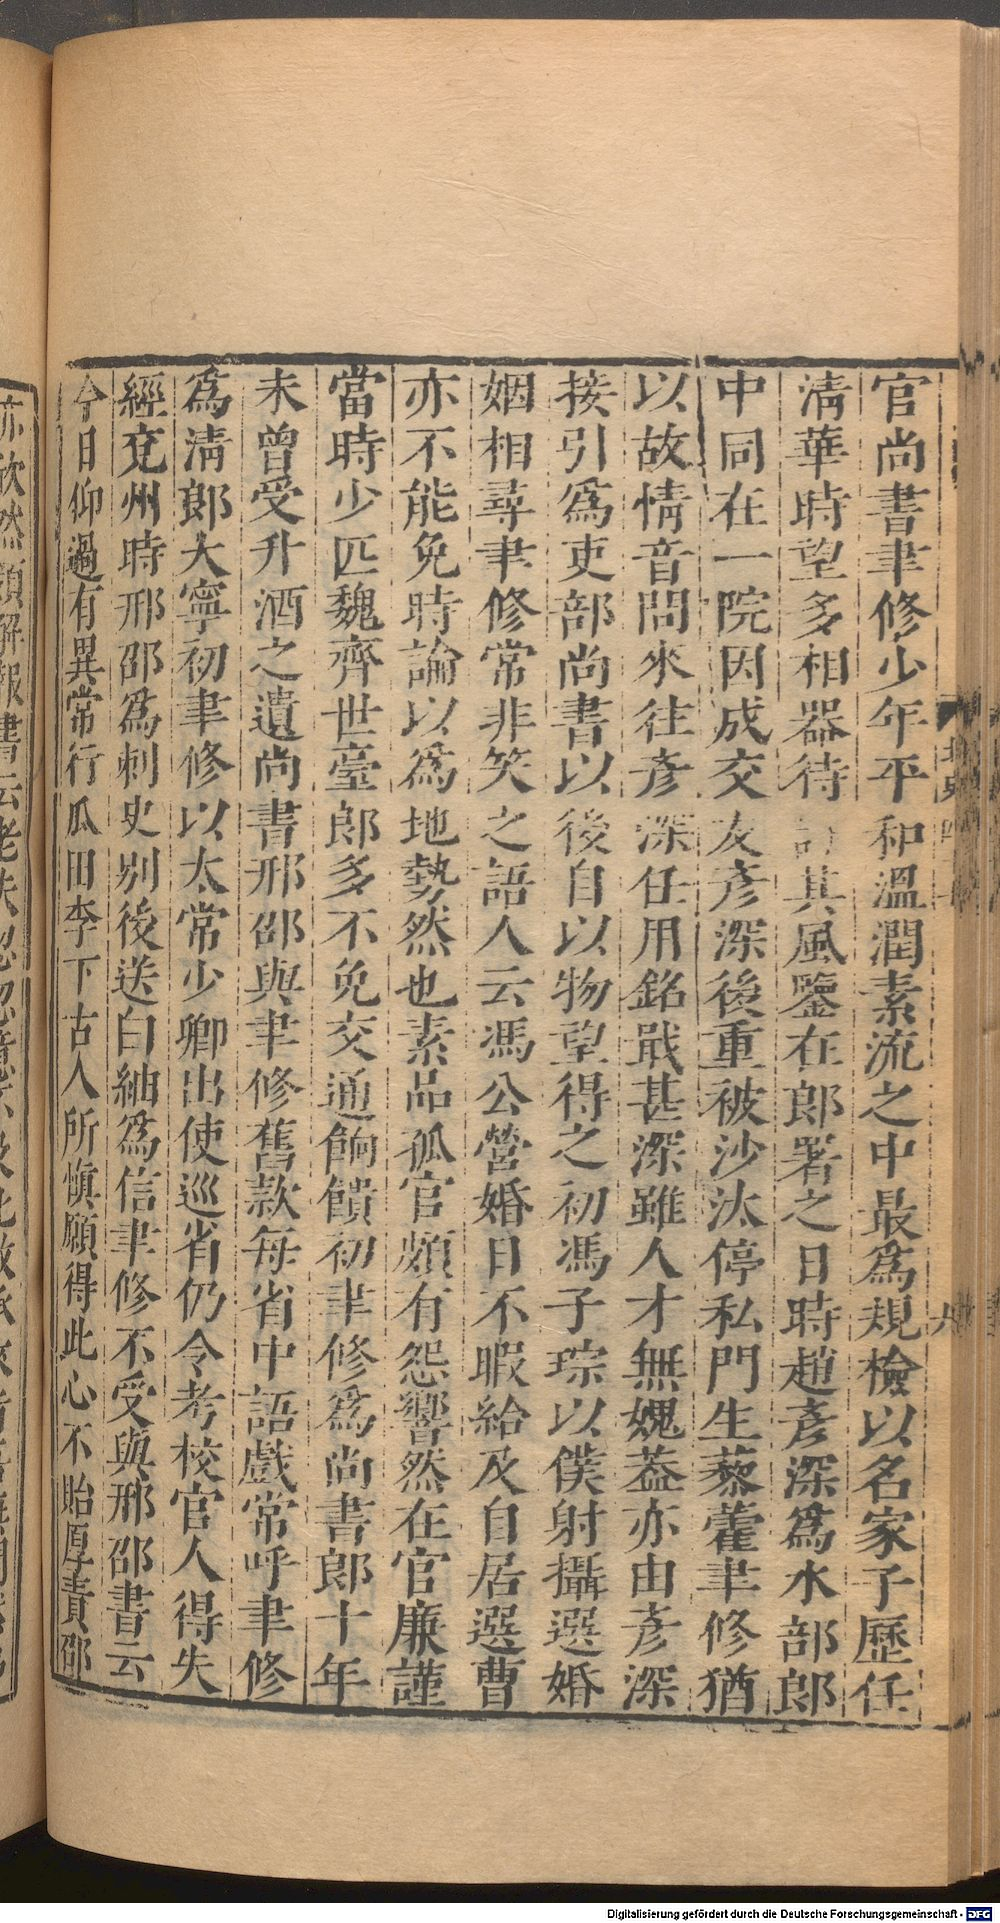 官尚書聿修少年平和溫潤素流之中最爲規檢以名家子歷任
淸華時望多相器待訏其風鑒在郎署之日時趙彥深爲水部郎
中同在一院因成交友彥深後重被沙汰停私門生藜藿聿修猶
以故情音問來往彥深任用銘戢甚深雖人才無媿葢亦由彥深
接引爲吏部尚書以後自以物望得之初馮子琮以僕射攝選婚
姻相尋聿修常非笑之語人云馮公營婚日不暇給及自居選曹
亦不能免時論以爲地勢然也素品孤官頗有怨響然在官廉謹
當時少匹魏齊世臺郎多不免交通餉饋初聿修爲尚書郎十年
未曾受升酒之遺尚書邢邵與聿修舊款每省中語戲常呼聿修
爲淸郎大寧初聿修以太常少卿出使巡省仍令考校官人得失
經兗州時邢邵爲刺史别後送白紬爲信聿修不受與邢邵書云
今日仰過有異常行瓜田李下古人所愼願得此心不貽厚責邵
亦欣然領解報書云老夫忽忽意不及此敬承來旨吾無間然弟
北史四十七
Digitalisierung gefördert durch die Deutsche Forschungsgemeinschaft - DFG